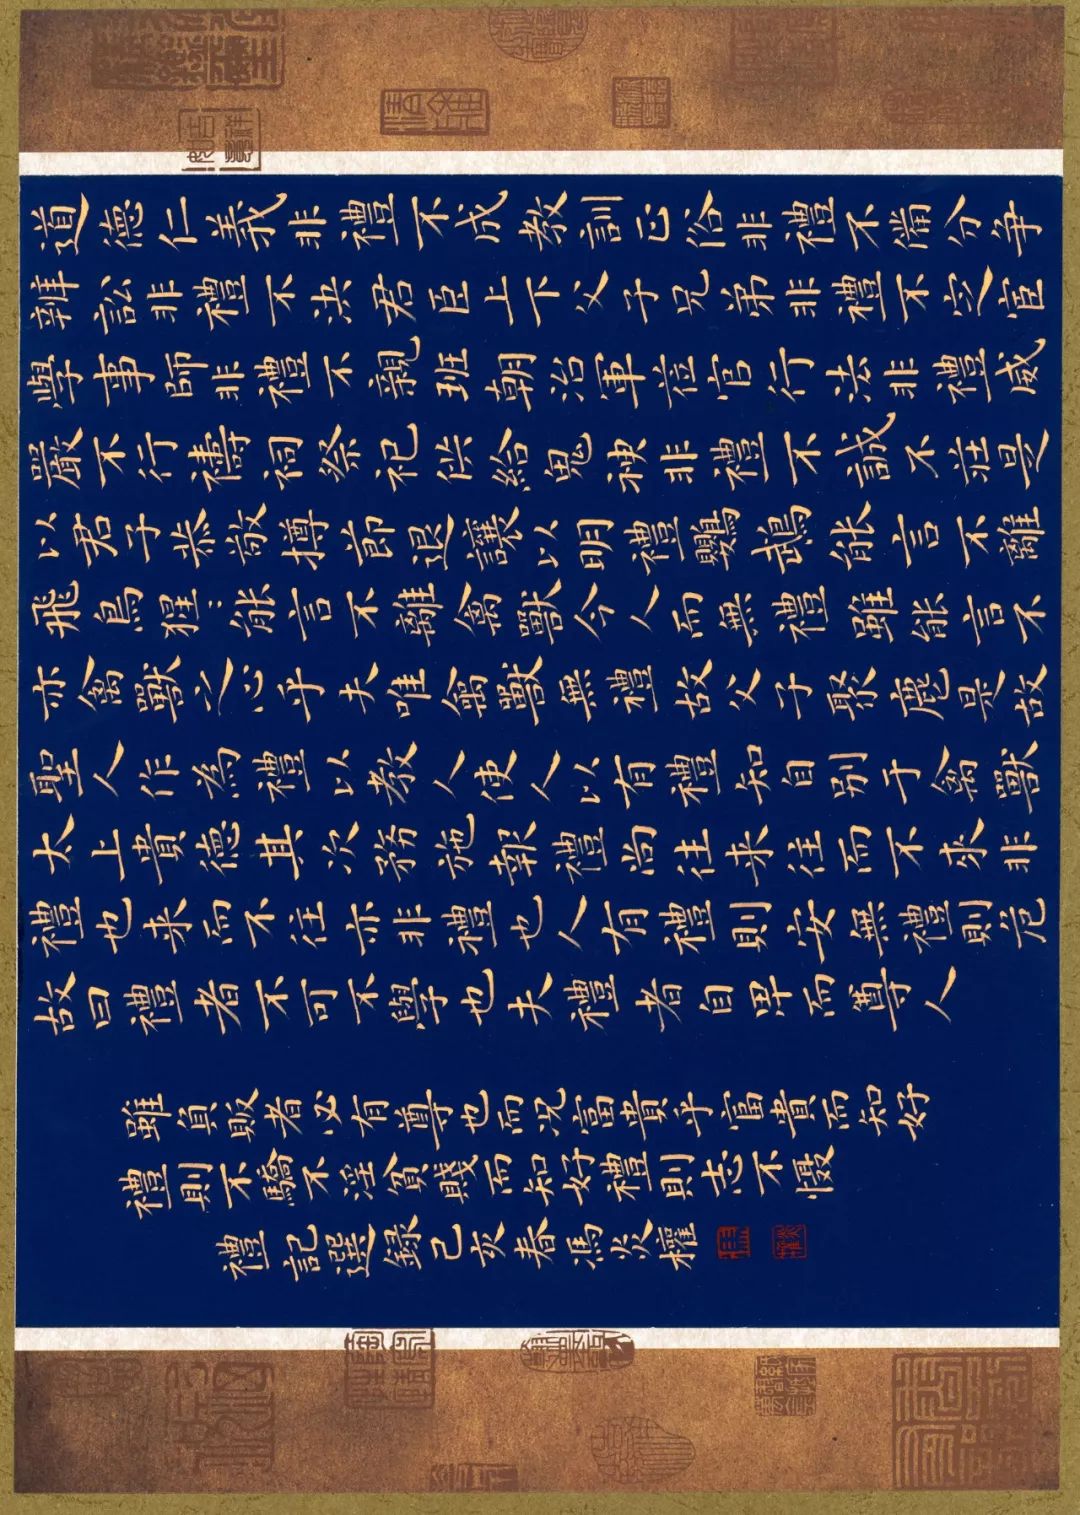 道德仁義非禮不成教訓正俗非禮不備分爭
辨訟非禮不決君臣上下父子兄弟非禮不定宦
學事師非禮不親班朝治軍莅官行法非禮威
嚴不行禱祠祭祀供給鬼神非禮不誠不莊是
以君子恭敬撙節退讓以明禮鸚鵡能言不離
飛鳥猩：能言不離禽獸今人而無禮雖能言不
亦禽獸之心乎夫唯禽獸無禮故父子聚麀是故
聖人作為禮以教人使人以有禮知自別于禽獸
太上貴德其次務施報禮尚往来往而不來非
禮也来而不往亦非禮也人有禮則安無禮則危
故曰禮者不可不學也夫禮者自卑而尊人
雖負販者必有尊也而況富貴乎富貴而知好
禮則不驕不淫貧賤而知好禮則志不懾
禮記選録己亥春馮炎權